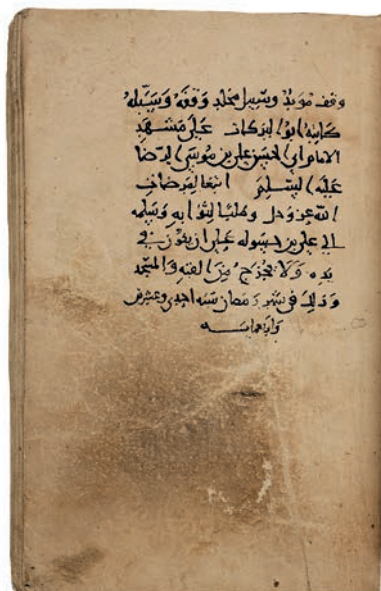 وقف موبد وسبيل مخلد وقفه وسبله
كاتبه ابو البركات على مشهد
الامام ابي الحسن علي بن موسى الرضا
عليه السلم ابتغا لمرضات
الله عز وجل وطلبا لثوابه وسلمه
الى علي بن حسوله على ان يكون في
يده ولا يخرج من القبه والمسجد
وذلك في شهر رمضان سنه احدى وعشرين
واربعمايه